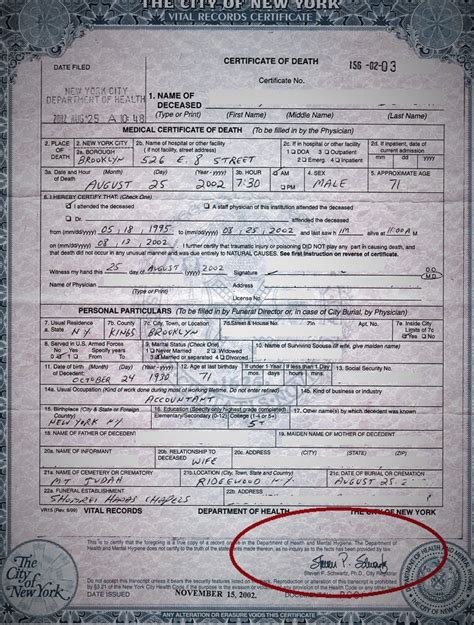 THE CITY OF NEW YORK
VITAL RECORDS CERTIFICATE
CERTIFICATE OF DEATH
DATE FILED
156-02-03
Certificate No.
NEW YORK CITY
DEPARTMENT OF HEALTH
2002 AUG 25 A 10:48
1. NAME OF DECEASED
(Type or Print) (First Name) (Middle Name) (Last Name)
MEDICAL CERTIFICATE OF DEATH (To be filled in by the Physician)
2. PLACE OF DEATH
2. NEW YORK CITY
2a. BOROUGH
BROOKLYN
2b. Name of hospital or other facility
(If not facility, street address)
526 E. 8 STREET
2c. If in hospital or other facility
1 DOA 3 Outpatient
2 Emerg. 4 Inpatient
2d. If inpatient, date of current admission
(mm-dd-yyyy)
3a. Date and Hour of Death
(Month) (Day) (Year - yyyy)
AUGUST 25 2002
3b. HOUR
7:30
AM
PM
4. SEX
MALE
5. APPROXIMATE AGE
71
6. I HEREBY CERTIFY THAT: (Check One)
I attended the deceased
A staff physician of this institution attended the deceased
Dr.
attended the deceased
from (mm/dd/yyyy) 05, 18, 1995 to (mm/dd/yyyy) 08, 25, 2002 and last saw h im alive at 11:00 A M
on (mm/dd/yyyy) I further certify that traumatic injury or poisoning DID NOT play any part in causing death, and
that death did not occur in any unusual manner and was due entirely to NATURAL CAUSES. See first instruction on reverse of certificate.
Witness my hand this 25 day of AUGUST 2002 Signature
D.O.
M.D.
Name of Physician
(Type or Print)
Address
License No.
PERSONAL PARTICULARS (To be filled in by Funeral Director or, in case of City Burial, by Physician)
7. Usual Residence
a. State
N.Y.
7b. County
KINGS
7c. City, Town, or Location
BROOKLYN
7d. Street & House No. Zip Apt. No.
7e. Inside City Limits of 7c
Yes No
8. Served in U.S. Armed Forces
No Yes
9. Marital Status (Check One)
1 Never Married 2 Widowed
3 Married or separated 4 Divorced
10. Name of Surviving Spouse (if wife, give maiden name)
11. Date of birth (Month) (Day) (Year - yyyy)
OCTOBER 24 1930
12. Age at last birthday
If under 1 Year
mos. days
If less than 1 Day
hours mins.
13. Social Security No.
14a. Usual Occupation (Kind of work done during most of working lifetime. Do not enter retired)
ACCOUNTANT
14b. Kind of business or industry
15. Birthplace (City & State or Foreign Country)
NEW YORK NY
16. Education (Specify only highest grade completed)
Elementary/Secondary (0-12) College (1-4 or 5+)
5+
17. Other name(s) by which decedent was known
18. NAME OF FATHER OF DECEDENT
19. MAIDEN NAME OF MOTHER OF DECEDENT
20a. NAME OF INFORMANT
20b. RELATIONSHIP TO DECEASED
WIFE
20c. ADDRESS
21a. NAME OF CEMETERY OR CREMATORY
MT JUDAH
21b. LOCATION (City, Town, State and Country)
RIDGEWOOD NY
21c. DATE OF BURIAL OR CREMATION
AUGUST 25 2
22a. FUNERAL ESTABLISHMENT
CHAPELS
22b. ADDRESS
VR15 (Rev. 6/99) VITAL RECORDS DEPARTMENT OF HEALTH THE CITY OF NEW YORK
This is to certify that the foregoing is a true copy of a record on file in the Department of Health and Mental Hygiene. The Department of
Health and Mental Hygiene does not certify to the truth of the statements made thereon, as no inquiry as to the facts has been provided by law.
Steven P. Schwartz
Steven P. Schwartz, Ph.D., City Registrar
Do not accept this transcript unless the security features are verified. Reproduction or alteration of this transcript is prohibited
by §3.21 of the New York City Health Code if the purpose is the evasion or violation of any
The City of New York
DATE ISSUED
NOVEMBER 15, 2002
DOCUMENT
ANY ALTERATION OR ERASURE VOIDS THIS CERTIFICATE